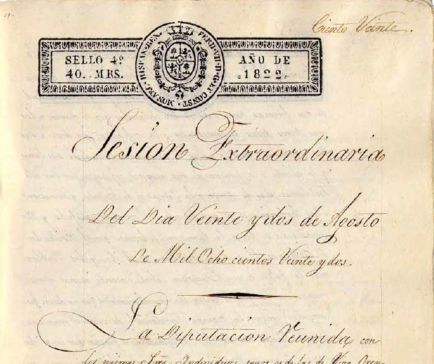 Ciento Veinte.
SELLO 4º
40. MRS.
AÑO DE
1822.
Sesion Extraordinaria
Del Dia Veinte y dos de Agosto
De Mil Ocho cientos Veinte y dos.
La Diputacion reunida con